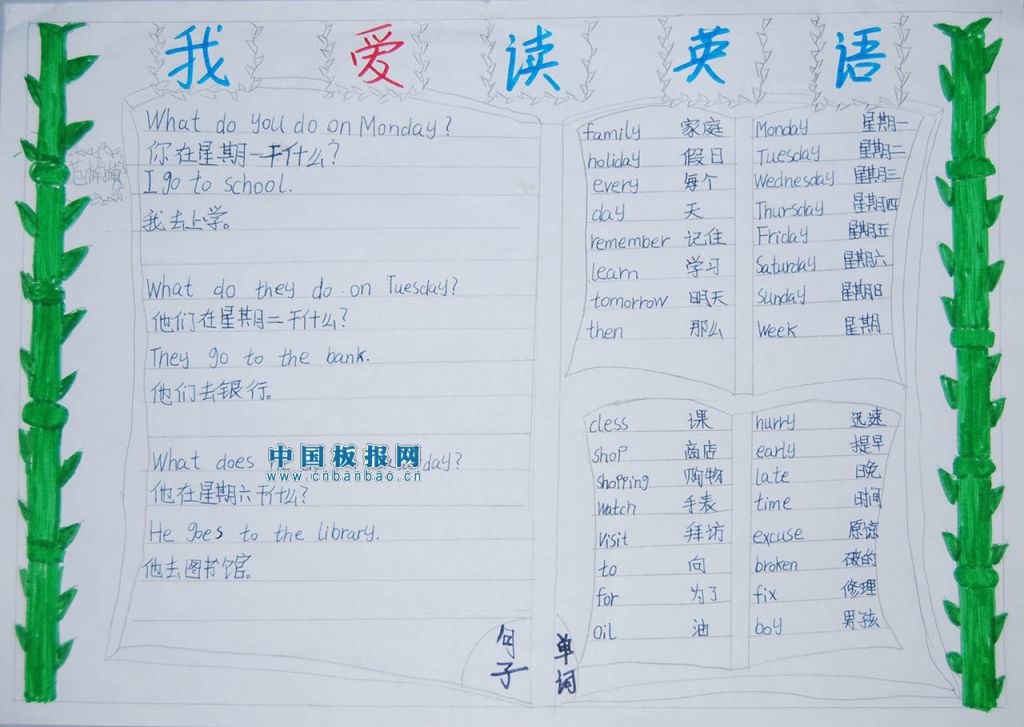 我 爱 读 英 语
What do you do on Monday?
你在星期一干什么?
I go to school.
我去上学。
What do they do on Tuesday?
他们在星期二干什么?
They go to the bank.
他们去银行。
What does day?
他在星期六干什么?
He goes to the library.
他去图书馆。
中国板报网
www.cnbanbao.cn
句子
单词
family 家庭
holiday 假日
every 每个
day 天
remember 记住
learn 学习
tomorrow 明天
then 那么
Monday 星期一
Tuesday 星期二
Wednesday 星期三
Thursday 星期四
Friday 星期五
Saturday 星期六
Sunday 星期日
Week 星期
cless 课
shop 商店
shopping 购物
watch 手表
visit 拜访
to 向
for 为了
oil 油
hurry 迅速
early 提早
late 晚
time 时间
excuse 原谅
broken 破的
fix 修理
boy 男孩